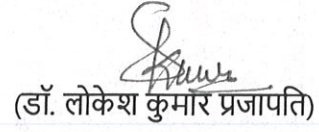 (डॉ. लोकेश कुमार प्रजापति)